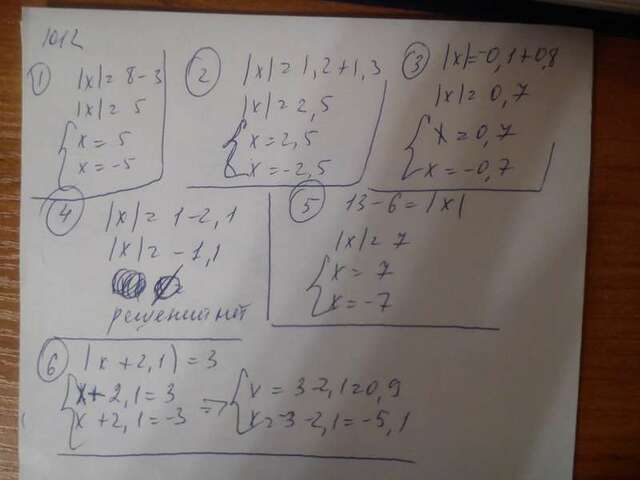 1012
① |x| = 8-3
|x| = 5
x = 5
x = -5
② |x| = 1,2+1,3
|x| = 2,5
x = 2,5
x = -2,5
③ |x|=-0,1+0,8
|x| = 0,7
x = 0,7
x = -0,7
④ |x| = 1-2,1
|x| = -1,1
решений нет
⑤ 13-6 = |x|
|x| = 7
x = 7
x = -7
⑥ |x+2,1| = 3
x+2,1=3 => x = 3-2,1=0,9
x+2,1=-3 x=-3-2,1=-5,1